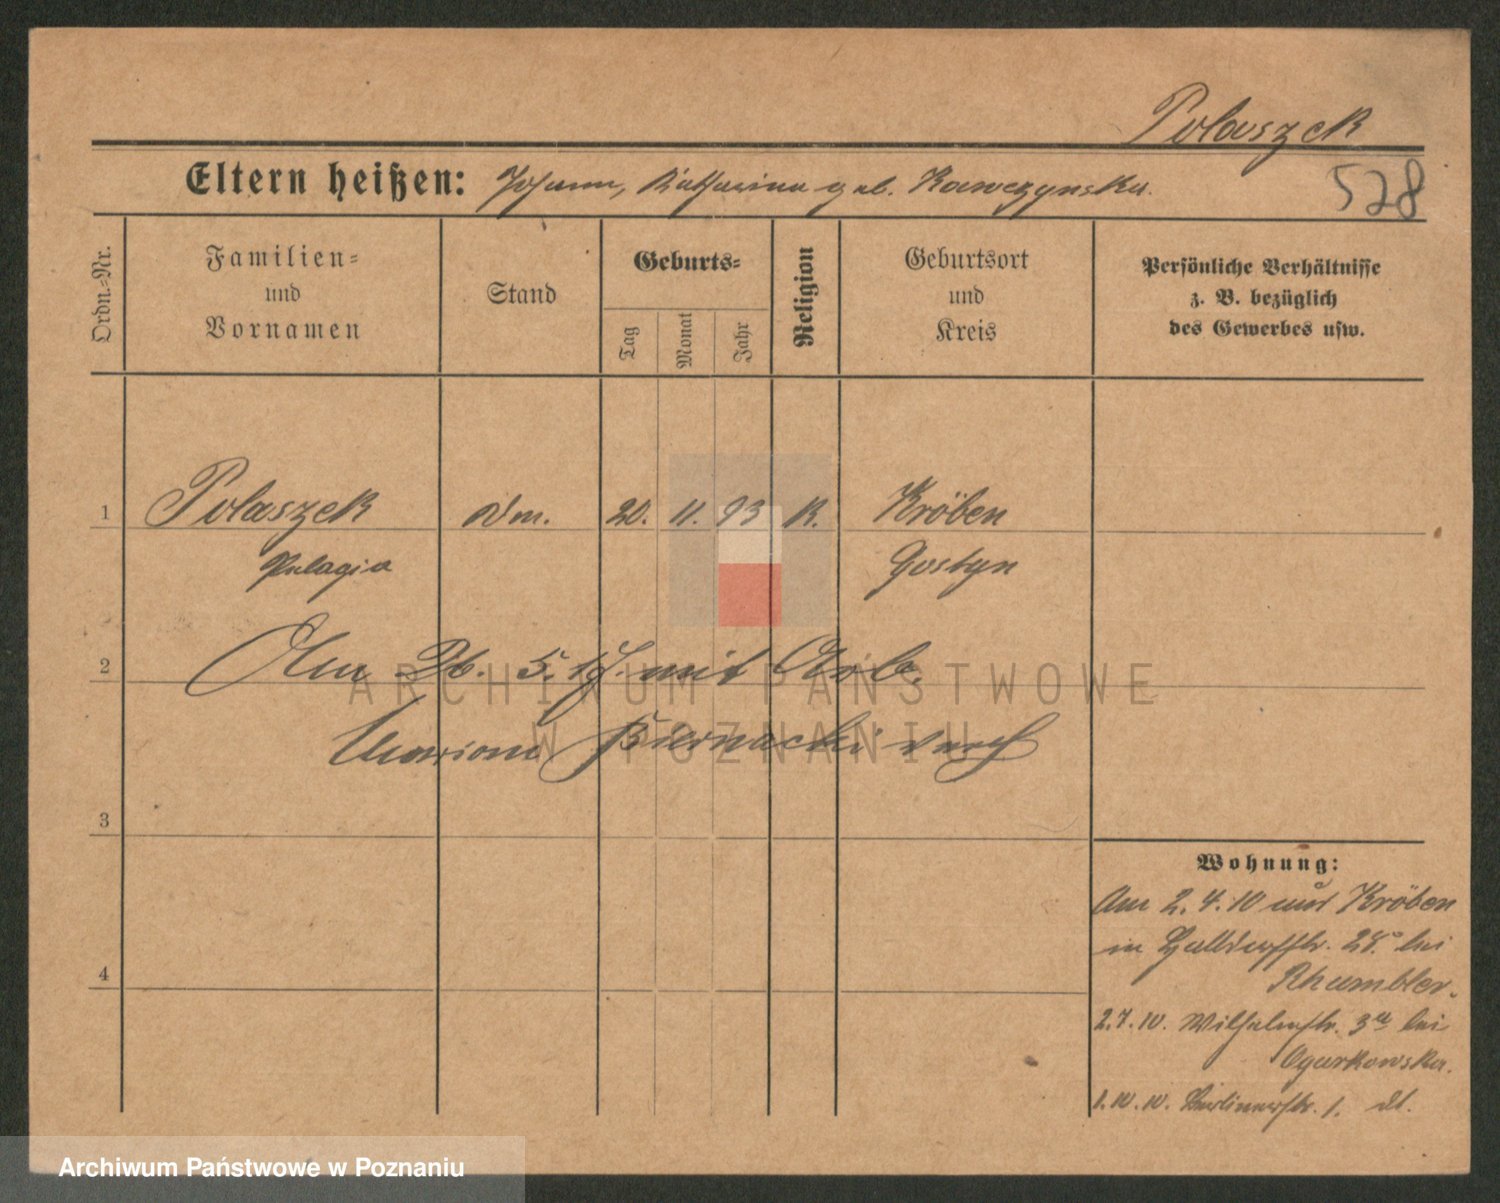 Polaszek
Eltern heißen: Johann, Katharina geb. Kawczynska.
528
Ordn.-Nr.
Familien-
und
Vornamen
Stand
Geburts-
Tag
Monat
Jahr
Religion
Geburtsort
und
Kreis
Persönliche Verhältnisse
z. B. bezüglich
des Gewerbes usw.
1 Polaszek Dm. 20. 11. 93 K. Kröben
Pelagia Gostyn
2 Am 26. 5. 17. mit Arb.
Marian Biernacki verh
3
4
Wohnung:
Am 2. 4. 10 aus Kröben
in Halldorfstr. 28. bei
Rhumbler.
2.7.10. Wilhelmstr. 3 bei
Ogurkowska.
1.10.10. Berlinerstr. 1.
ARCHIWUM PAŃSTWOWE
W POZNANIU
Archiwum Państwowe w Poznaniu